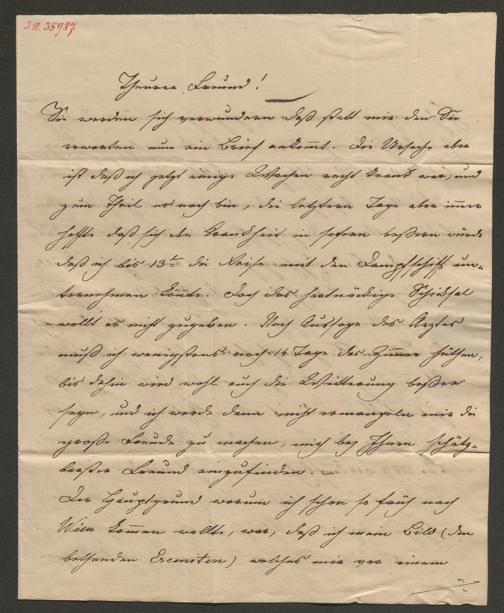 I.N. 35987
Theurer Freund!
Sie werden sich verwundern daß statt mir den Sie
erwarten nun ein Brief ankommt. Die Ursache aber
ist daß ich jetzt einige Wochen recht krank war, und
zum Theil es noch bin, die letztern Tage aber immer
hoffte daß sich die Krankheit in sofern bessern würde
daß ich bis 13te die Reise mit dem Dampfschiffe un-
ternehmen könnte. Doch das hartnäckige Schicksal
wollt es nicht zugeben. Nach Aussage des Arztes
muß ich wenigstens noch 14 Tage das Zimmer hüthen,
bis dahin wird wohl auch die Witterung besser
seyn, und ich werde dann nicht ermangeln mir die
große Freude zu machen, mich bey Ihnen schätz-
barster Freund einzufinden.
Der Hauptgrund warum ich schon so früh nach
Wien kommen wollte, war, daß ich mein Bild (den
bethenden Eremiten) welches mir vor einem